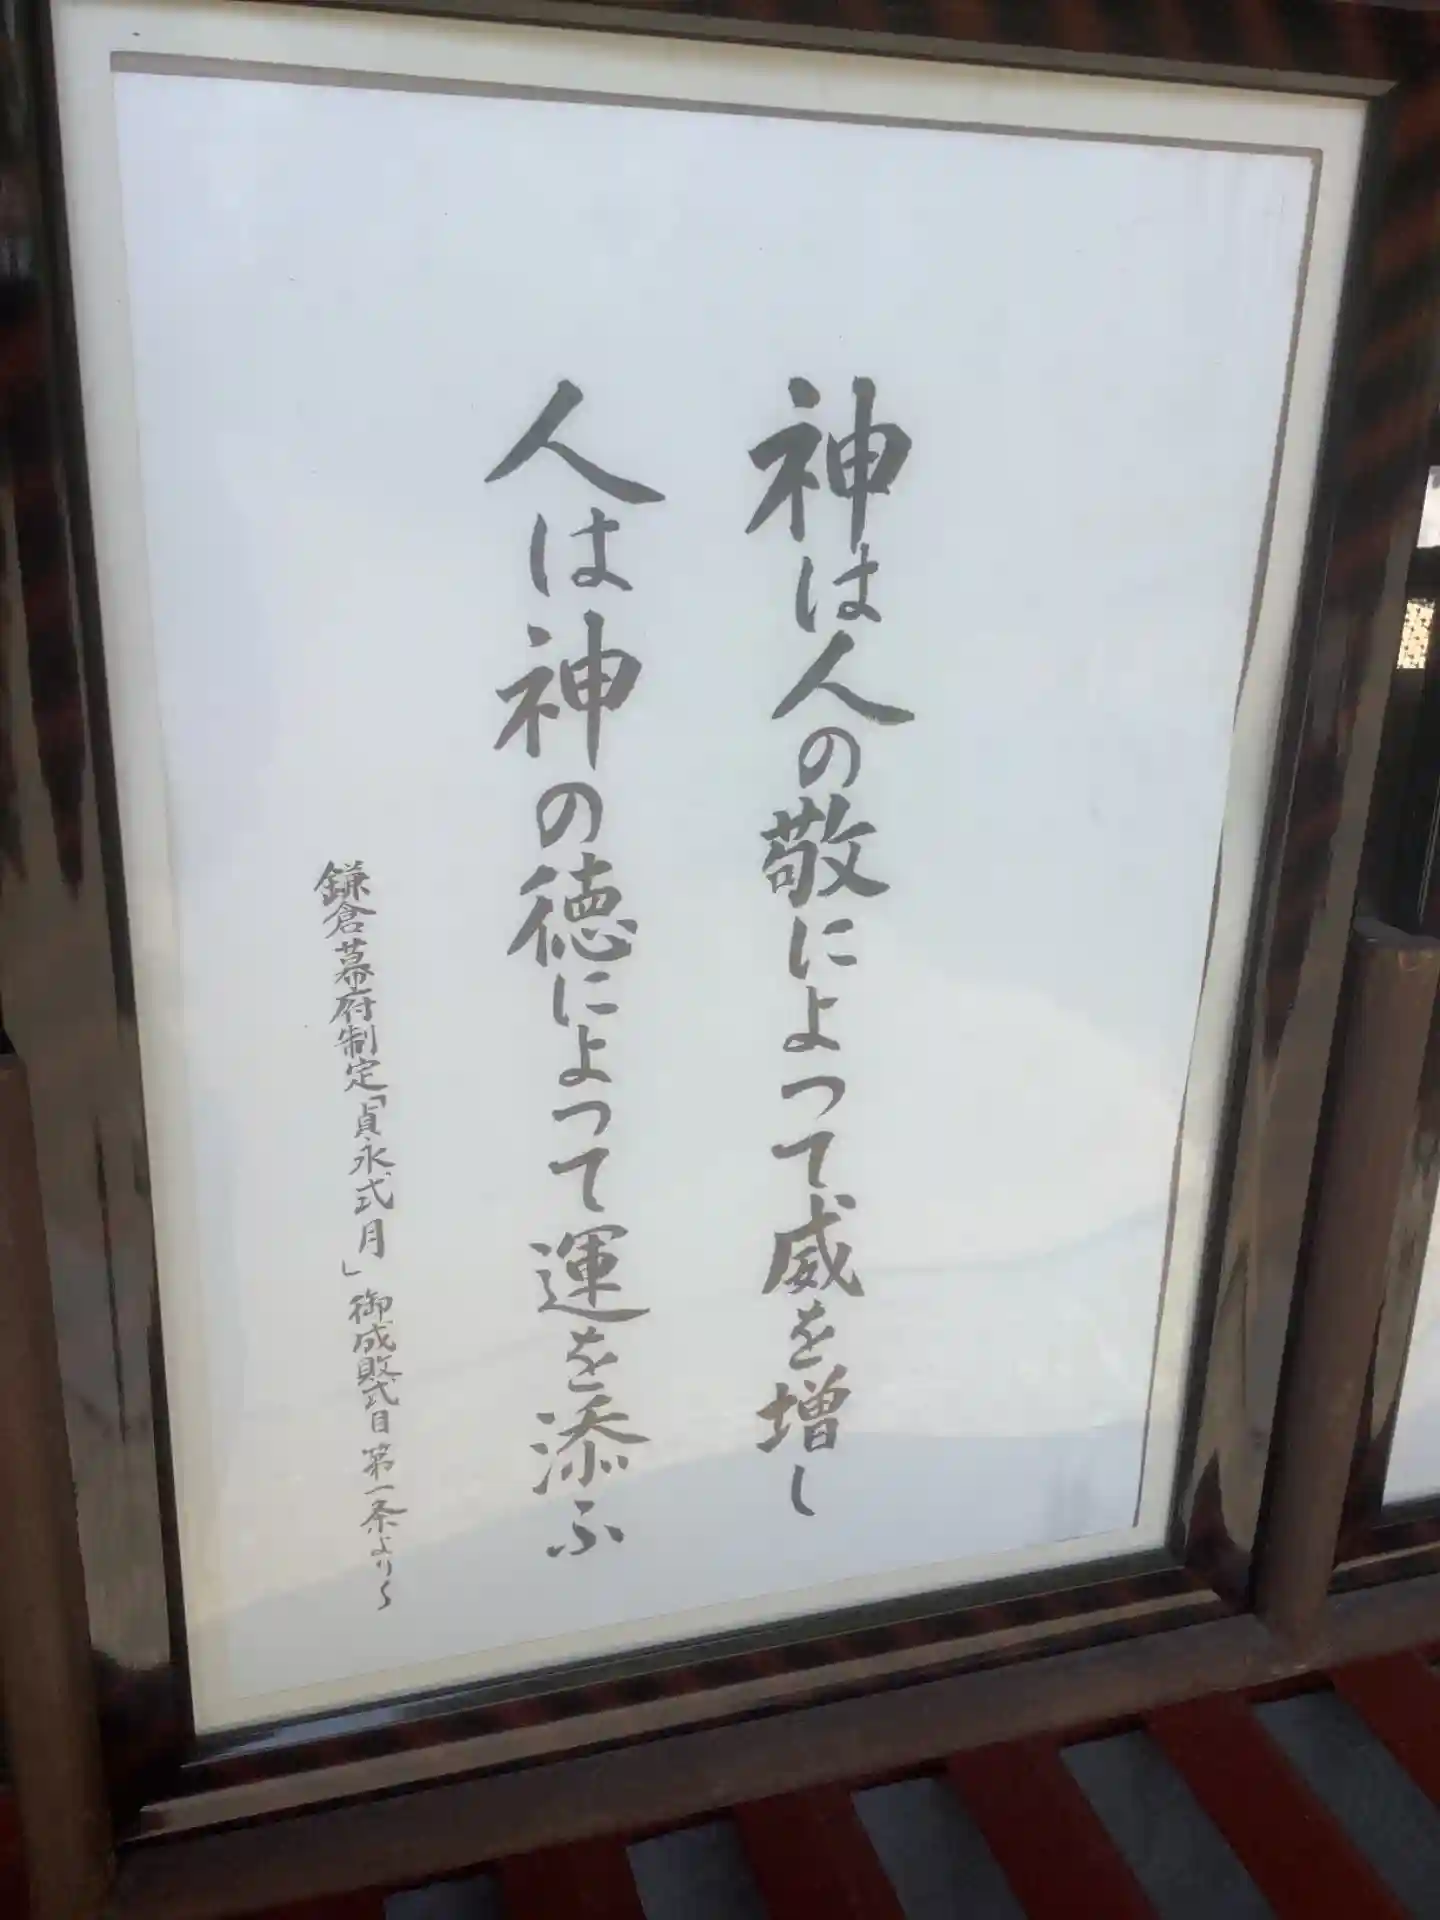 神は人の敬によつて威を増し
人は神の徳によつて運を添ふ
鎌倉幕府制定「貞永式月」御成敗式目第一条より〜